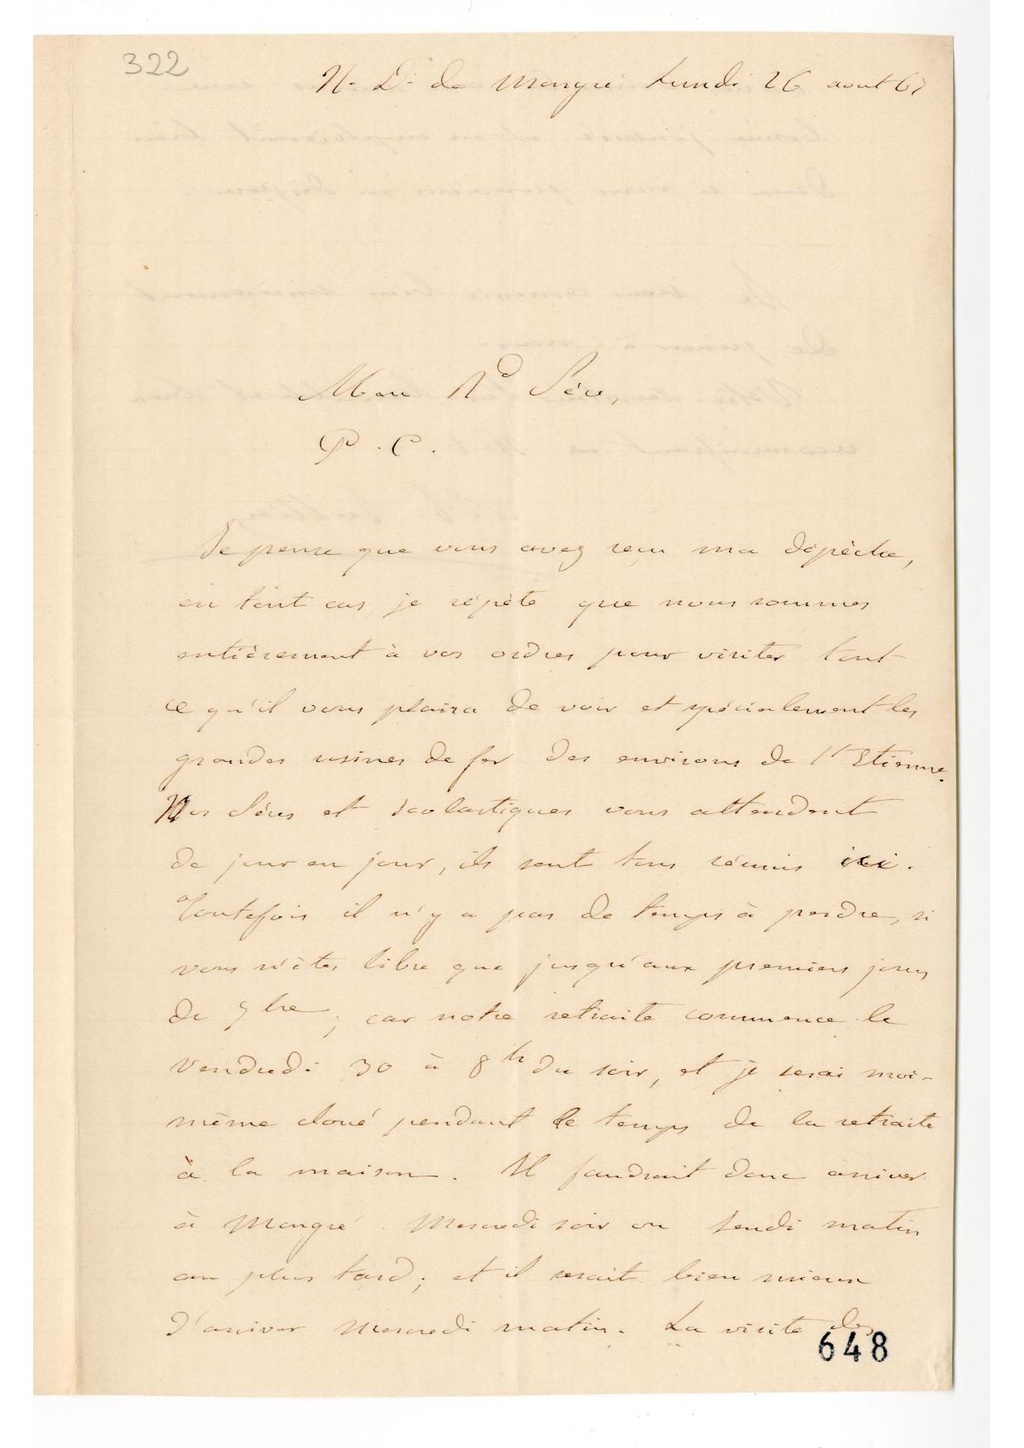 322
N. D. de Mongré Lundi 26 aout 67
Mon Rd Père,
P. C.
Je pense que vous avez reçu ma dépèche,
en tout cas, je répète que nous sommes
entièrement à vos ordres pour visiter tout
ce qu'il vous plaira de voir et spécialement les
grandes usines de fer des environs de St Etienne.
Nos Pères et scolastiques vous attendent
de jour en jour, ils sont tous réunis ici.
Toutefois il n'y a pas de temps à perdre, si
vous n'êtes libre que jusqu'aux premiers jours
de 7bre; car notre retraite commence le
Vendredi 30 à 8h du soir, et je serai moi-
même cloué pendant le temps de la retraite
à la maison. Il faudrait donc arriver
à Mongré Mercredi soir ou Jeudi matin
au plus tard; et il serait bien mieux
d'arriver Mercredi matin. La visite des
648